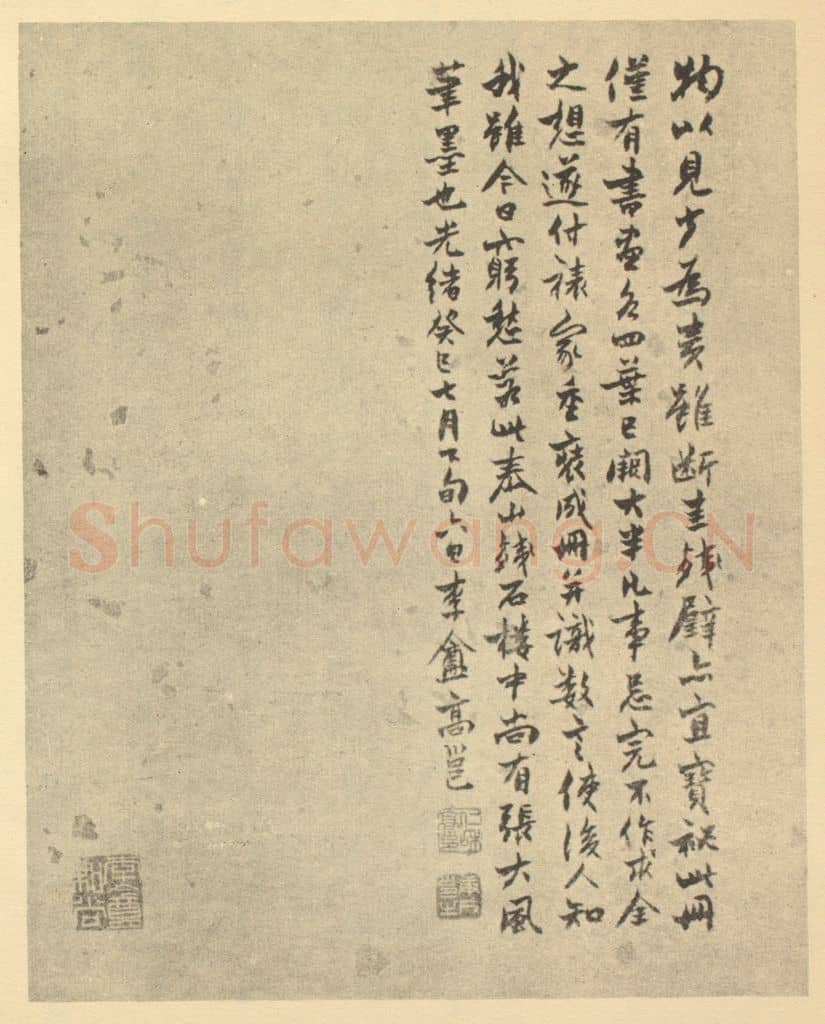 物以見少為貴雖斷圭殘璧亦宜寶祕此冊
僅有書畫各四葉已闕大半凡事忌完不作求全
之想遂付裱家重裝成冊并識數言使後人知
我雖今日窮愁若此泰山殘石樓中尚有張大風
筆墨也光緒癸巳七月下旬六日李盦高邕
Shufawang.CN